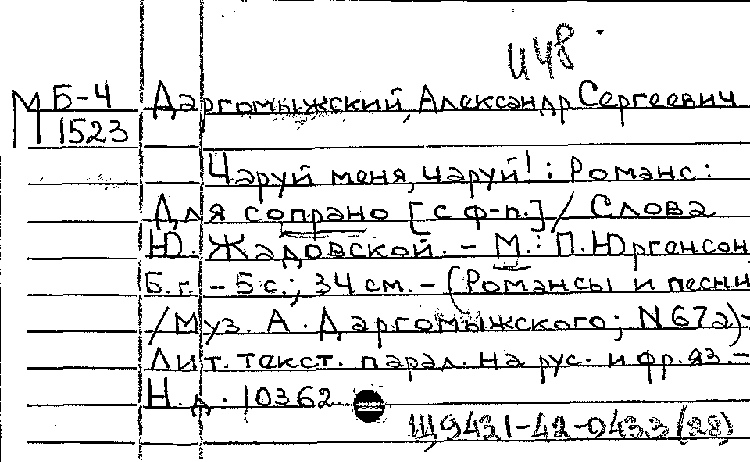 И48
М Б-4 Даргомыжский, Александр Сергеевич
1523
Чаруй меня, чаруй! : Романс :
Для сопрано [с ф-п.] / Слова
Ю. Жадовской. - М. : П. Юргенсон,
Б. г. - 5 с.; 34 см. - (Романсы и песни
/ Муз. А. Даргомыжского; N 67а) -
Лит. текст. парал. на рус. и фр. яз. -
Н. д. 10362
Щ9431-42-0433(28)